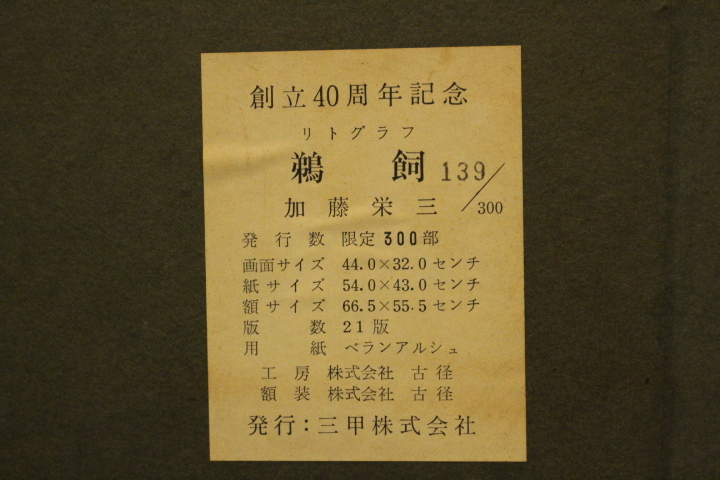 創立40周年記念
リトグラフ
鵜 飼 139/300
加藤栄三
発行数 限定300部
画面サイズ 44.0×32.0センチ
紙サイズ 54.0×43.0センチ
額サイズ 66.5×55.5センチ
版数 21版
用紙 ベランアルシュ
工房 株式会社 古径
額装 株式会社 古径
発行:三甲株式会社